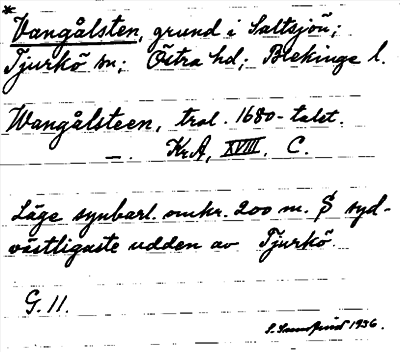 * Vangålsten, grund i Saltsjön;
Tjurkö sn; Östra hd; Blekinge l.
Wangålsteen, trol. 1680-talet.
—. Kr.A, XVIII. C.
Läge synbarl. omkr. 200 m. S syd-
västligaste udden av Tjurkö.
G. 11.
1936.